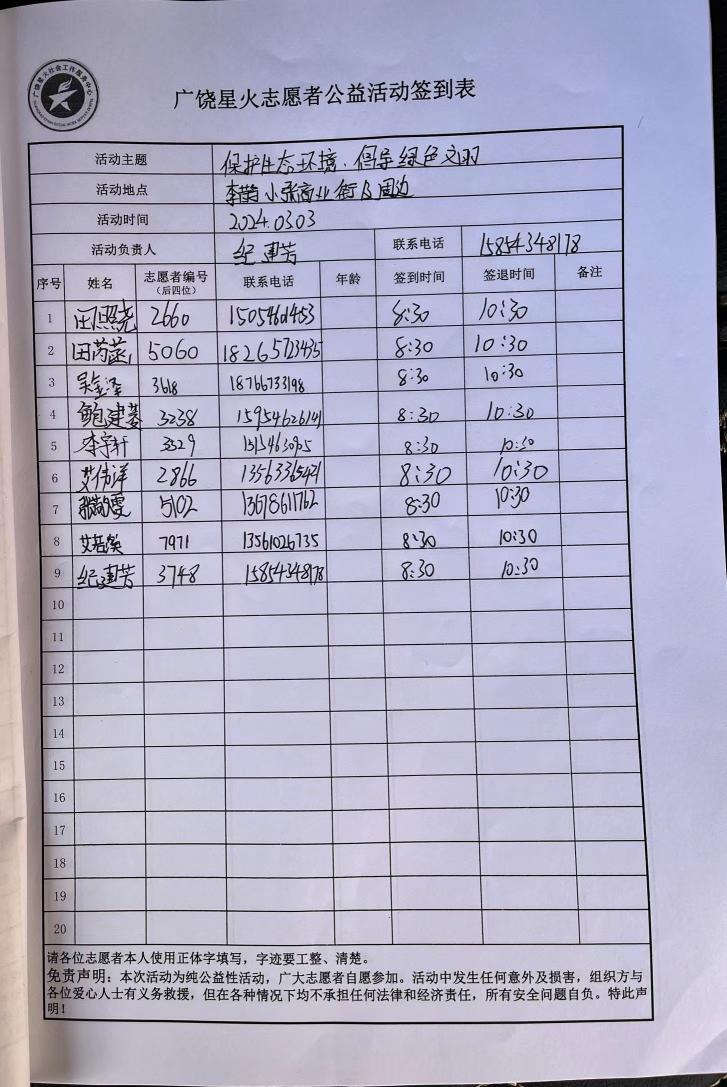 广饶星火社会工作服务中心
广饶星火志愿者公益活动签到表
活动主题 保护生态环境、倡导绿色文明
活动地点 李鹊小张商业街及周边
活动时间 2024.03.03
活动负责人 纪建芳 联系电话 15854348178
序号 姓名 志愿者编号（后四位） 联系电话 年龄 签到时间 签退时间 备注
1 田照尧 2660 15054601453 8:30 10:30
2 田芮菡 5060 18265723435 8:30 10:30
3 吴金泽 3618 18766733198 8:30 10:30
4 鲍建菱 3238 15954626141 8:30 10:30
5 李宇轩 3329 8:30 10:30
6 艾伟洋 2866 13563365421 8:30 10:30
7 5102 13678611762 8:30 10:30
8 7971 13561026735 8:30 10:30
9 纪建芳 3748 15854348178 8:30 10:30
10
11
12
13
14
15
16
17
18
19
20
请各位志愿者本人使用正体字填写，字迹要工整、清楚。
免责声明：本次活动为纯公益性活动，广大志愿者自愿参加。活动中发生任何意外及损害，组织方与
各位爱心人士有义务救援，但在各种情况下均不承担任何法律和经济责任，所有安全问题自负。特此声
明！